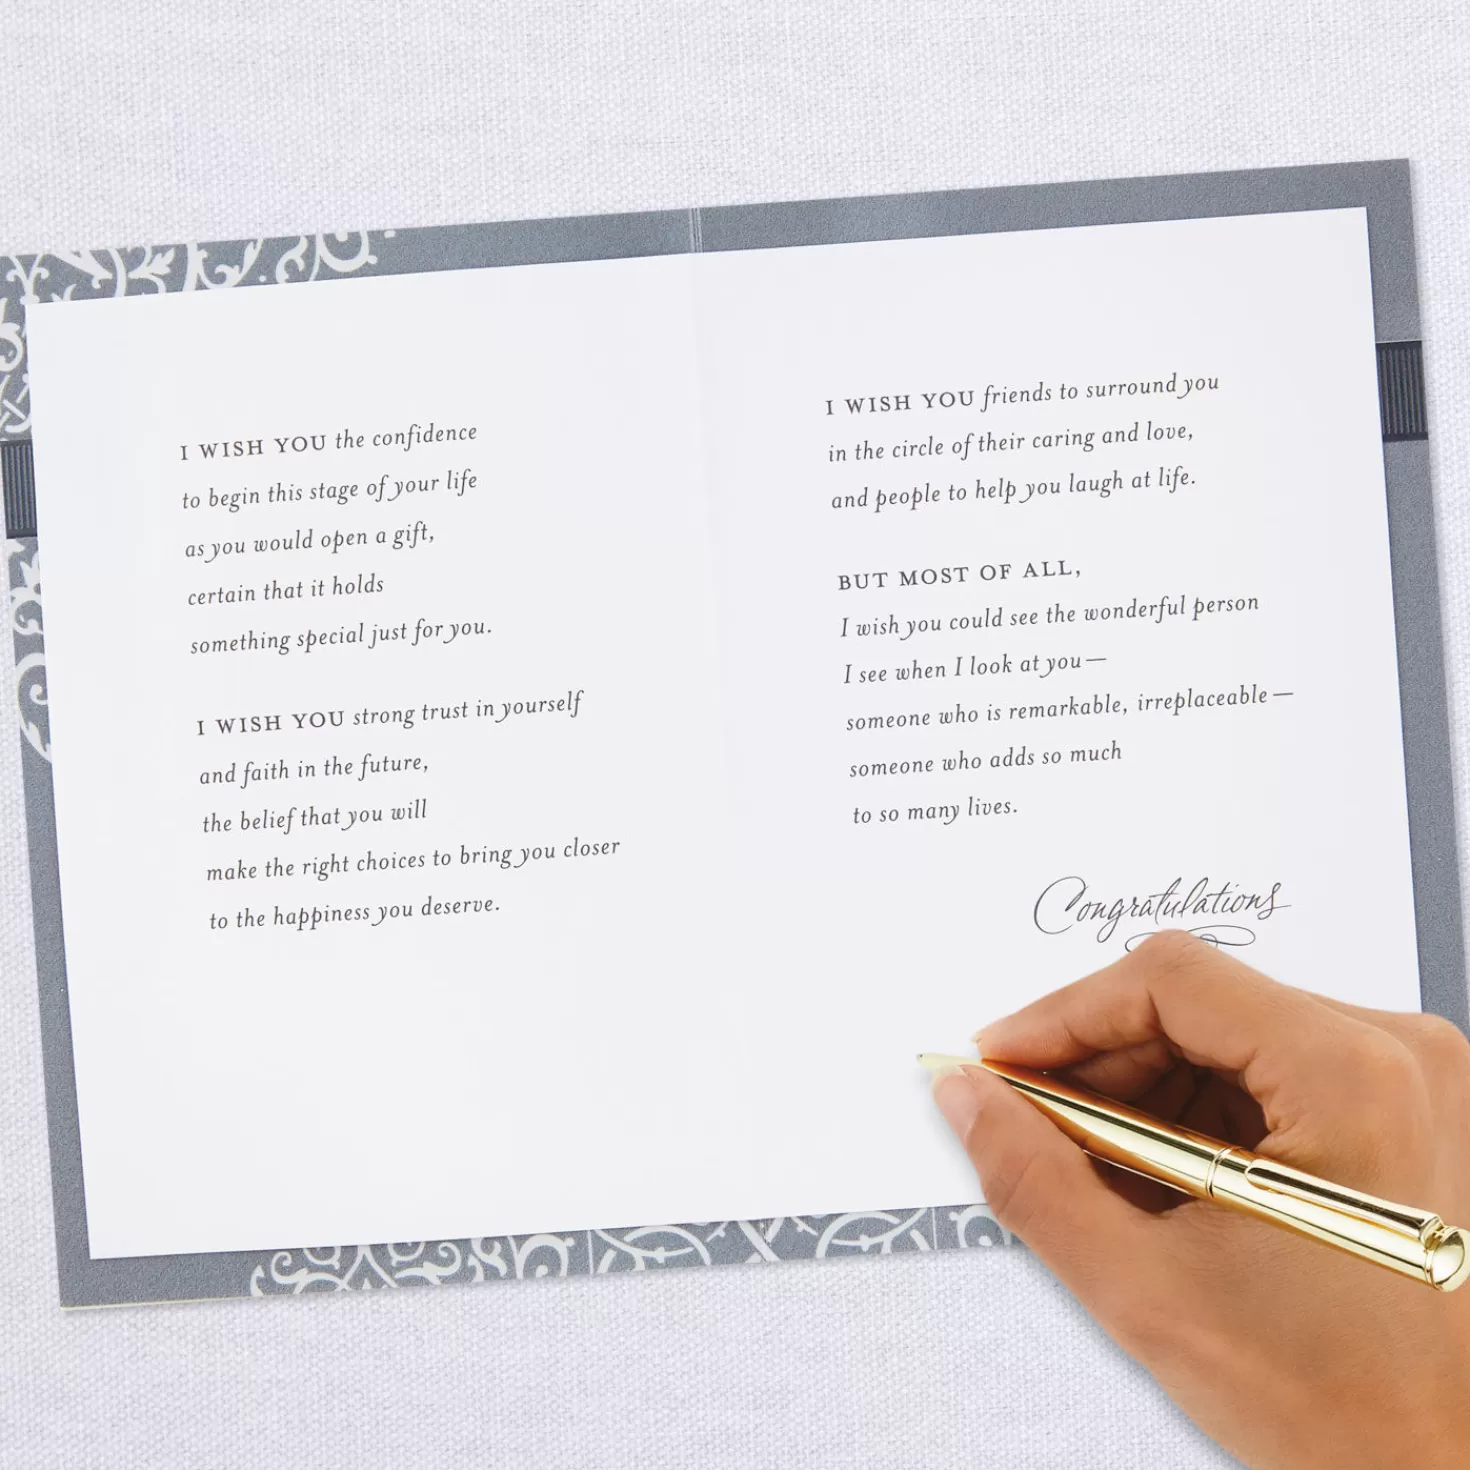 I WISH YOU the confidence
to begin this stage of your life
as you would open a gift,
certain that it holds
something special just for you.
I WISH YOU strong trust in yourself
and faith in the future,
the belief that you will
make the right choices to bring you closer
to the happiness you deserve.
I WISH YOU friends to surround you
in the circle of their caring and love,
and people to help you laugh at life.
BUT MOST OF ALL,
I wish you could see the wonderful person
I see when I look at you—
someone who is remarkable, irreplaceable—
someone who adds so much
to so many lives.
Congratulations